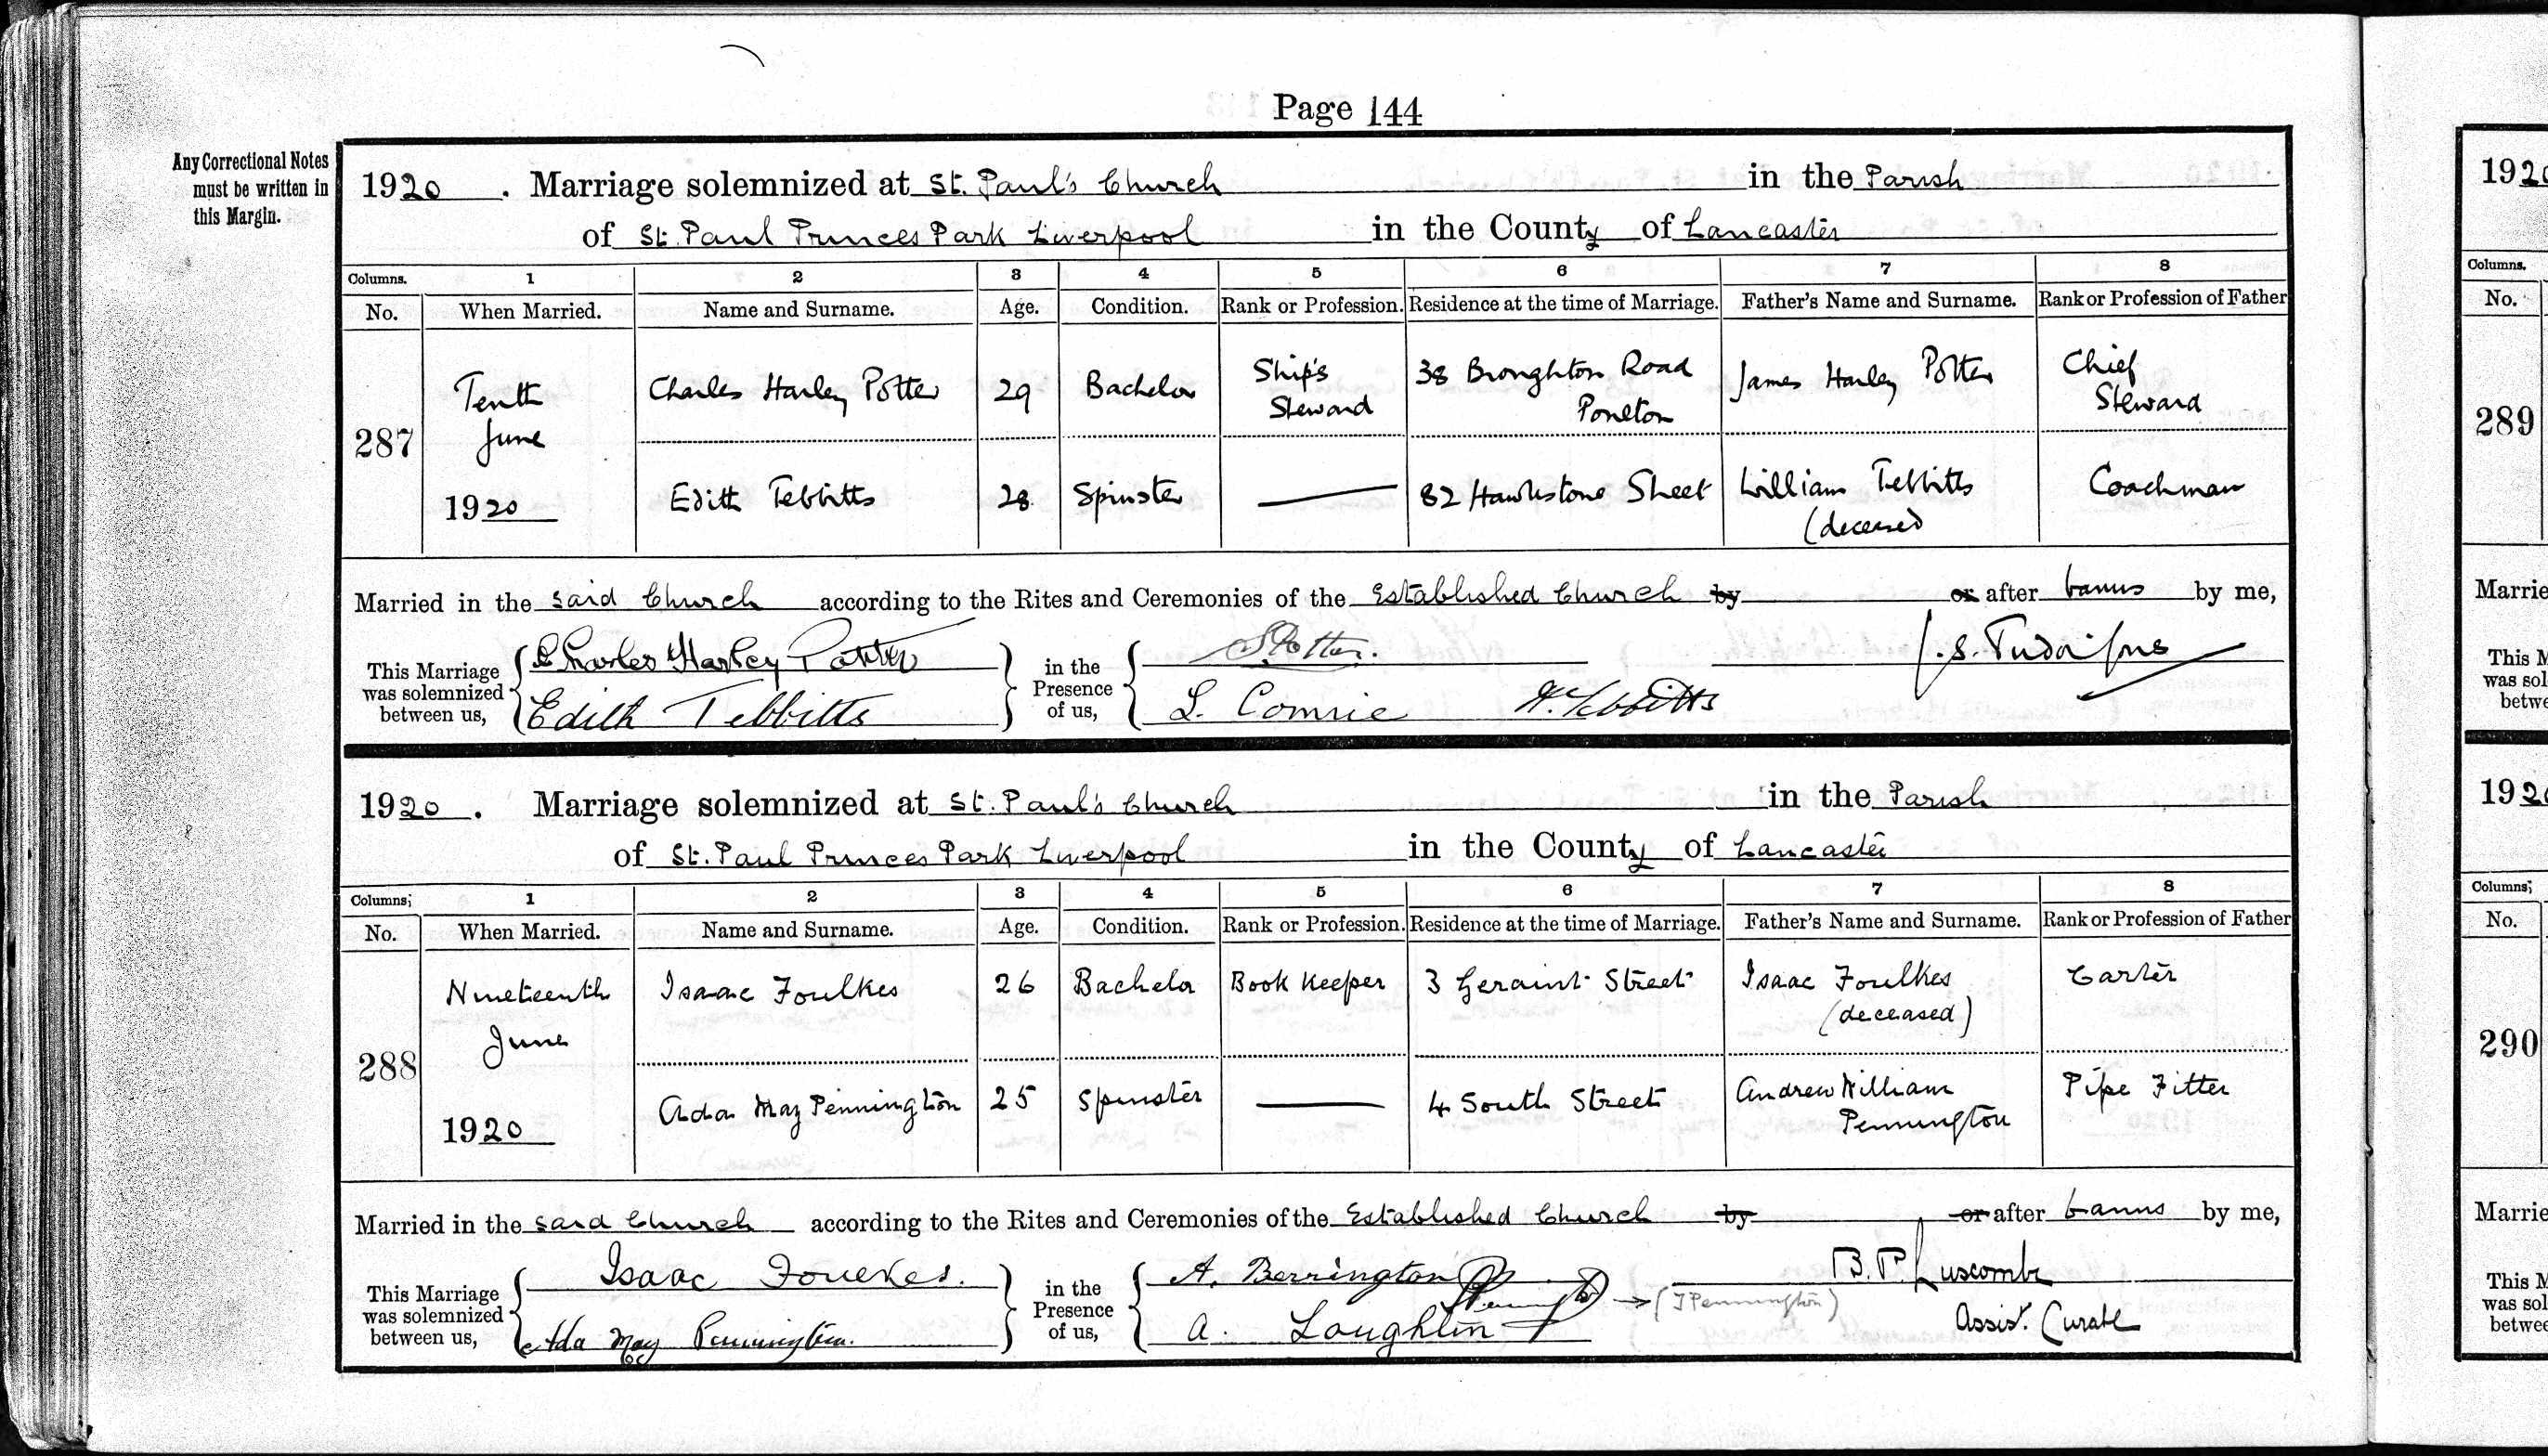 Page 144
Any Correctional Notes
must be written in
this Margin.
1920 . Marriage solemnized at St. Paul's Church in the Parish
of St. Paul Princes Park Liverpool in the County of Lancaster
Columns. 1 2 3 4 5 6 7 8
No. When Married. Name and Surname. Age. Condition. Rank or Profession. Residence at the time of Marriage. Father's Name and Surname. Rank or Profession of Father
287
Tenth
June
1920
Charles Harley Potter 29 Bachelor Ship's
Steward 38 Broughton Road
Poulton James Harley Potter Chief
Steward
Edith Tebbitts 28 Spinster 82 Hawkstone Street William Tebbitts
(deceased Coachman
Married in the said Church according to the Rites and Ceremonies of the Established Church by or after banns by me,
This Marriage
was solemnized
between us,
Charles Harley Potter
Edith Tebbitts
in the
Presence
of us,
Potter.
L. Comrie W. Tebbitts
1920 . Marriage solemnized at St. Paul's Church in the Parish
of St. Paul Princes Park Liverpool in the County of Lancaster
Columns; 1 2 3 4 5 6 7 8
No. When Married. Name and Surname. Age. Condition. Rank or Profession. Residence at the time of Marriage. Father's Name and Surname. Rank or Profession of Father
288
Nineteenth
June
1920
Isaac Foulkes 26 Bachelor Book Keeper 3 Geraint Street Isaac Foulkes
(deceased) Carter
Ada May Pennington 25 Spinster 4 South Street Andrew William
Pennington Pipe Fitter
Married in the said Church according to the Rites and Ceremonies of the Established Church by or after banns by me,
This Marriage
was solemnized
between us,
Isaac Foulkes.
Ada May Pennington.
in the
Presence
of us,
A. Berrington
J Pennington → (J Pennington)
A. Loughlin
B. P. Luscombe
Assist. Curate
1920
Columns.
No.
289
Marrie
This M
was sol
betwe
1920
Columns;
No.
290
Marrie
This M
was sol
betwee